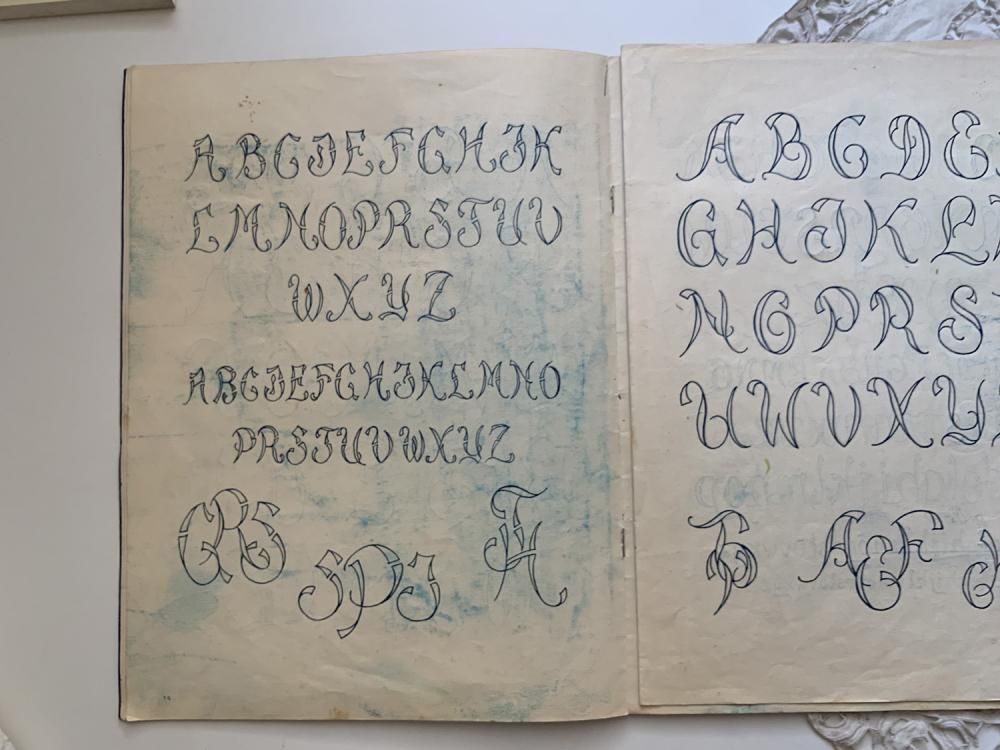 A B C D E F G H J K
L M N O P R S T U V
W X Y Z
A B C D E F G H J K L M N O
P R S T U V W X Y Z
A B C D E
G H J K L
N O P R S
U W V X Y